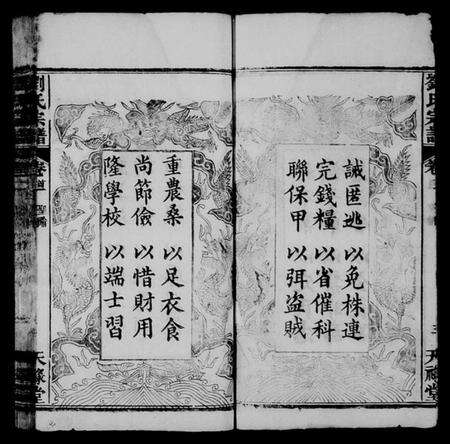 劉氏宗譜
卷
三
天祿堂
誡匿逃以免株連
完錢糧以省催科
聯保甲以弭盜賊
重農桑以足衣食
尚節儉以惜財用
隆學校以端士習
劉氏宗譜
卷首
天祿堂